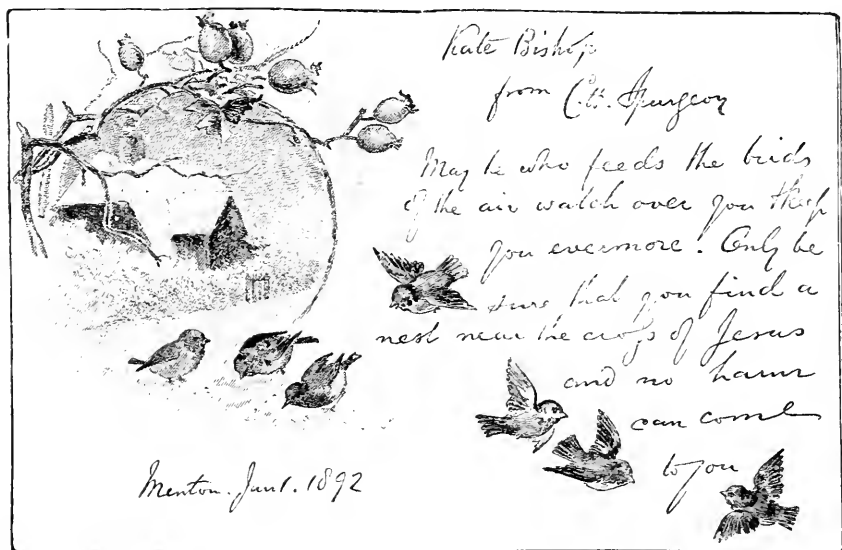 Kate Bishop
from C. H. Spurgeon
May he who feeds the birds
of the air watch over you & keep
you evermore. Only be
sure that you find a
nest near the cross of Jesus
and no harm
can come
to you
Menton. Jan 1. 1892